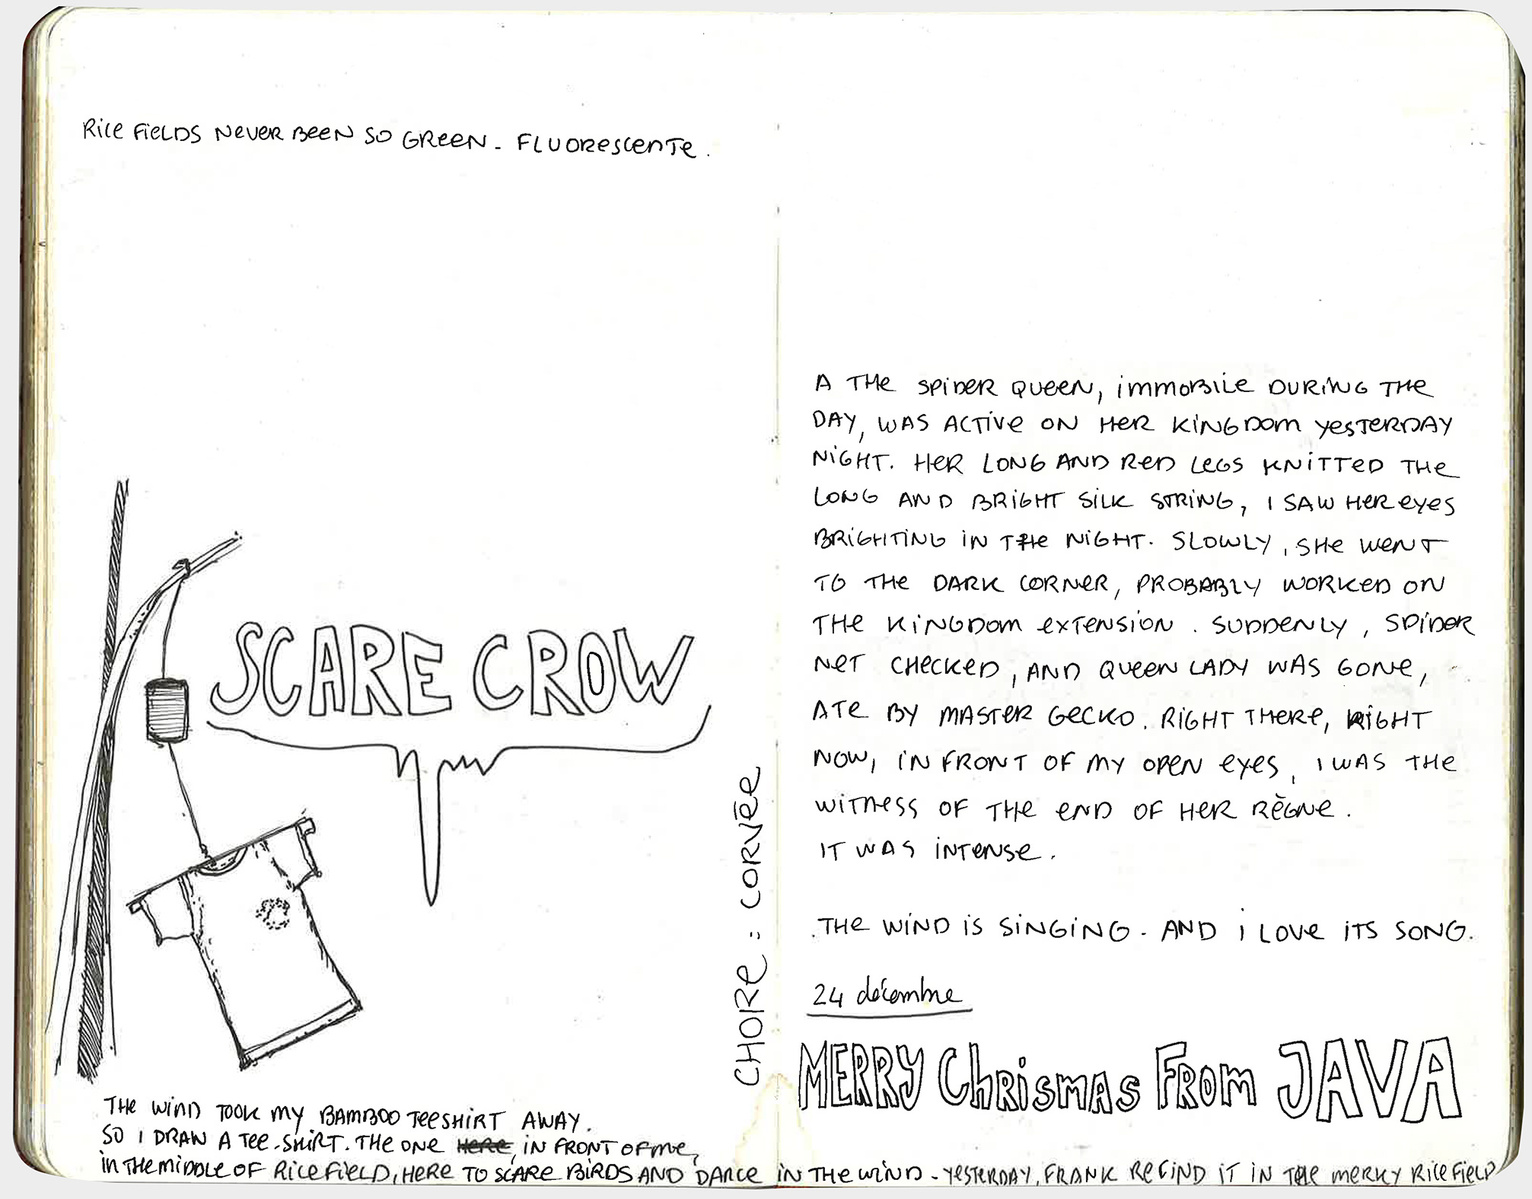 Rice Fields never been so green - Fluorescente.
SCARE CROW
The wind took my bamboo teeshirt away.
So I draw a tee-shirt. The one here, in front of me,
in the middle of rice field, here to scare birds and dance in the wind - Yesterday, Frank refind it in the merky rice field
CHORE : CORVÉE
A the spider queen, immobile during the
day, was active on her kingdom yesterday
night. Her long and red legs knitted the
long and bright silk string, I saw her eyes
brighting in the night. Slowly, she went
to the dark corner, probably worked on
the kingdom extension. Suddenly, spider
net checked, and queen lady was gone,
ate by master gecko. Right there, right
now, in front of my open eyes, I was the
witness of the end of her règne.
It was intense.
.The wind is singing - And i love its song.
24 décembre
MERRY Chrismas From JAVA